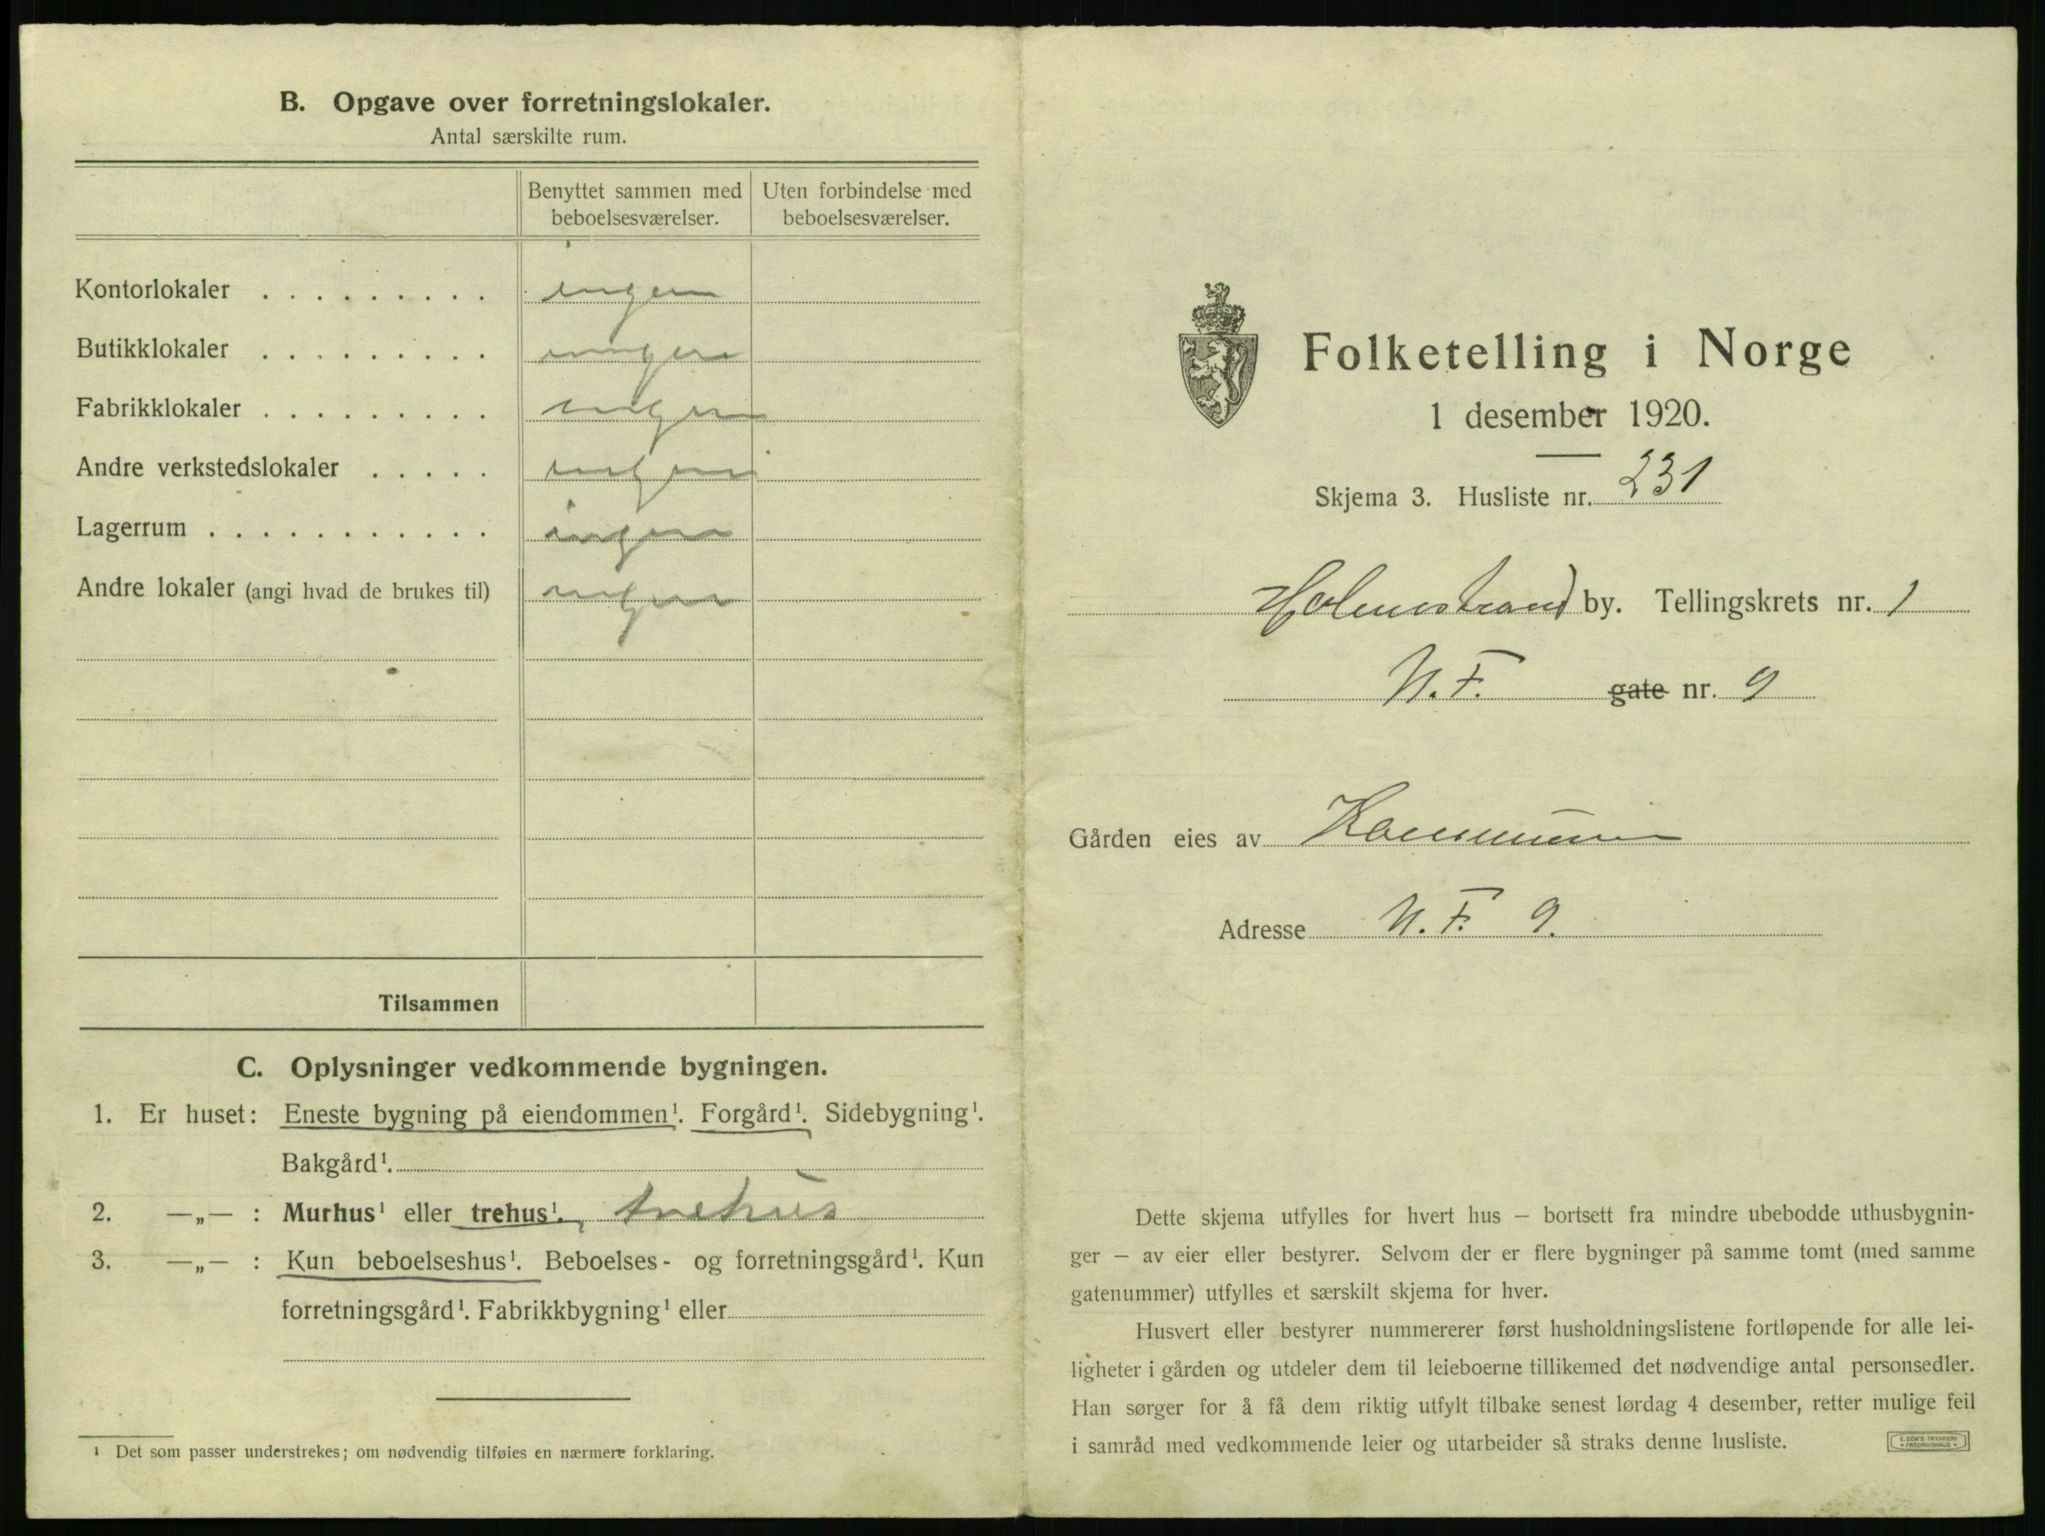 B. Opgave over forretningslokaler.
Antal særskilte rum.
Benyttet sammen med beboelsesværelser.
Uten forbindelse med beboelsesværelser.
Kontorlokaler . . . . . . . . . ingen
Butikklokaler . . . . . . . . . ingen
Fabrikklokaler . . . . . . . . . ingen
Andre verkstedslokaler . . . . . ingen
Lagerrum . . . . . . . . . . . ingen
Andre lokaler (angi hvad de brukes til) ingen
Tilsammen
C. Oplysninger vedkommende bygningen.
1. Er huset: Eneste bygning på eiendommen¹. Forgård¹. Sidebygning¹.
Bakgård¹.
2. —„— : Murhus¹ eller trehus¹. trehus
3. —„— : Kun beboelseshus¹. Beboelses- og forretningsgård¹. Kun
forretningsgård¹. Fabrikkbygning¹ eller
¹ Det som passer understrekes; om nødvendig tilføies en nærmere forklaring.
Folketelling i Norge
1 desember 1920.
Skjema 3. Husliste nr. 231
Holmestrand by. Tellingskrets nr. 1
N. F. gate nr. 9
Gården eies av Kommunen
Adresse N. F. 9.
Dette skjema utfylles for hvert hus – bortsett fra mindre ubebodde uthusbygnin-
ger – av eier eller bestyrer. Selvom der er flere bygninger på samme tomt (med samme
gatenummer) utfylles et særskilt skjema for hver.
Husvert eller bestyrer nummererer først husholdningslistene fortløpende for alle lei-
ligheter i gården og utdeler dem til leieboerne tillikemed det nødvendige antal personsedler.
Han sørger for å få dem riktig utfylt tilbake senest lørdag 4 desember, retter mulige feil
i samråd med vedkommende leier og utarbeider så straks denne husliste.
E. SEM'S TRYKKERI
FREDRIKSHALD